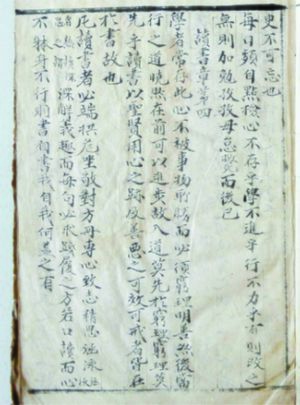 臾不可忘也
每日頻自點檢心不存乎學不進乎行不力乎有則改之
無則加勉孜孜毋怠斃而後已
讀書章第四
學者常存此心不被事物所勝而必須窮理明善然後當
行之道曉然在前可以進步故入道莫先於窮理窮理莫
先乎讀書以聖賢用心之跡及善惡之可效可戒者皆在
於書故也
凡讀書者必端拱危坐敬對方冊專心致志精思涵泳
深解義趣而每句必求踐履之方若口讀而心
不體身不行則書自書我自我何益之有